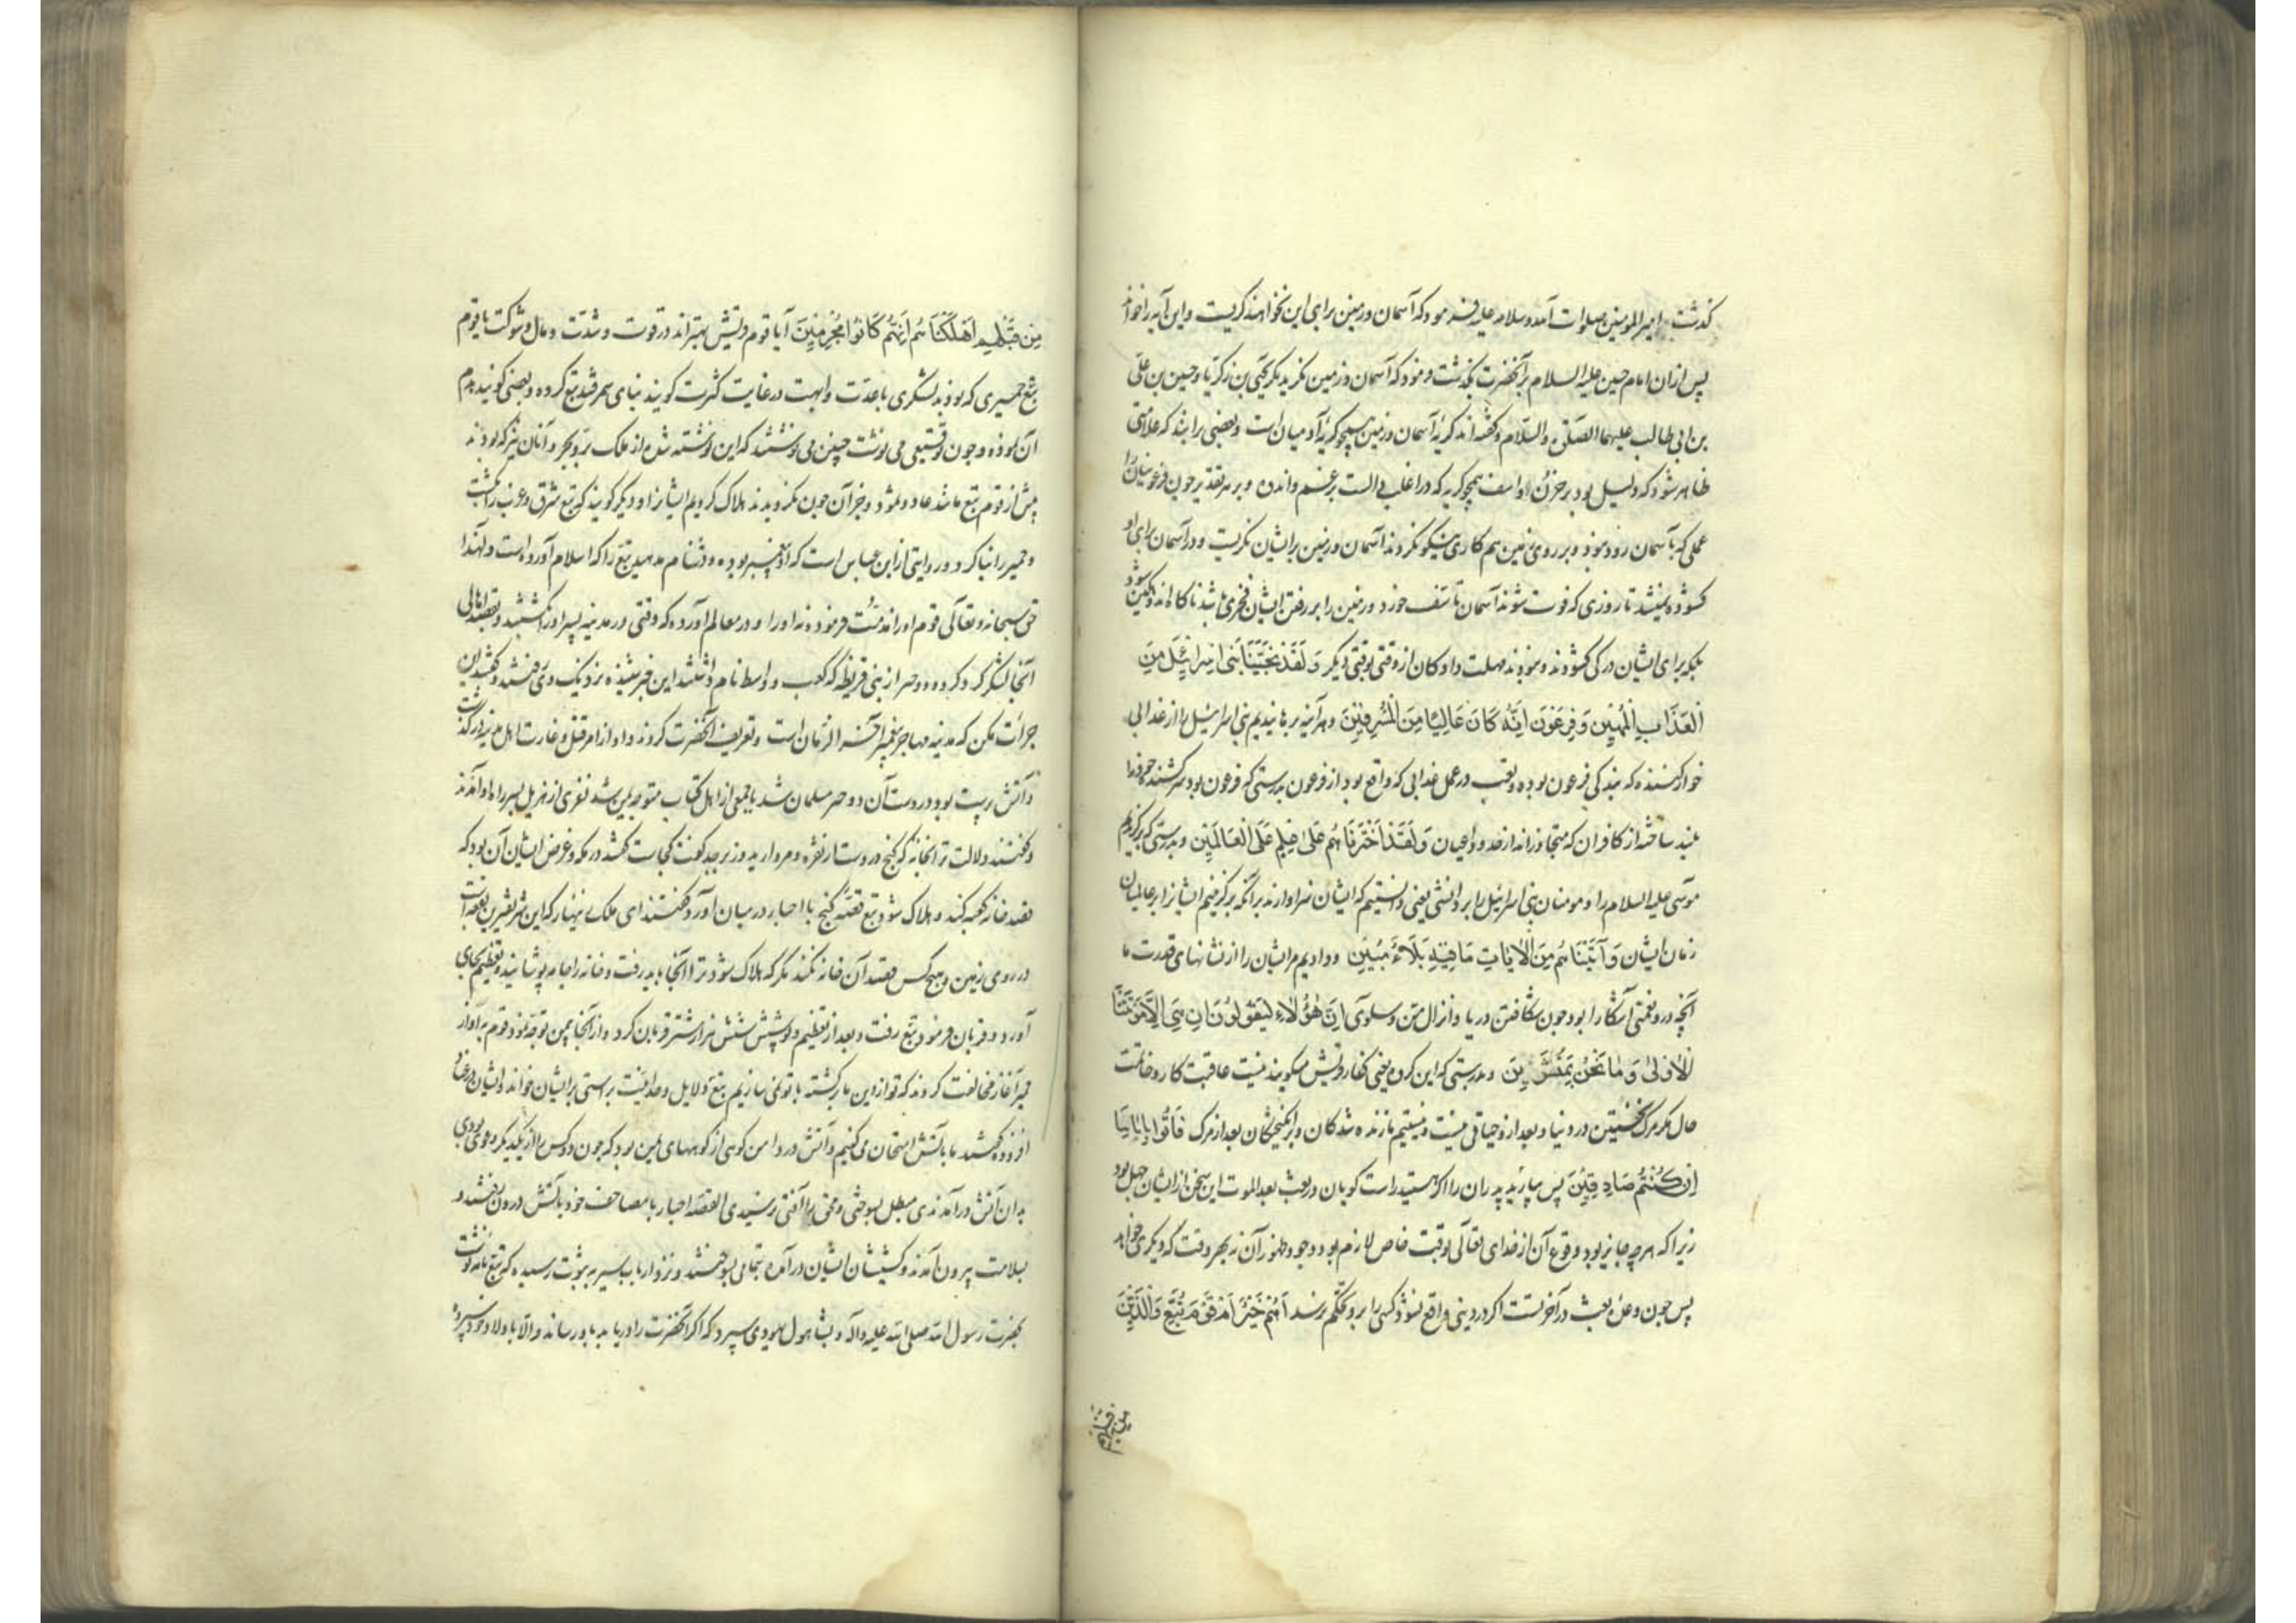 گذشت امیر المومنین صلوات الله و سلامه علیه فرمود که آسمان و زمین برای این نخواهند گریست و این آیه را خواند
پس ازان امام حسین علیه السلام بر آنحضرت بگذشت فرمود که آسمان و زمین نگریند مگر یحیی بن زکریا و حسین بن علی
بن ابی طالب علیهما الصلوة والسلام و گفته اند که گریه آسمان و زمین همچو گریه آدمیان است و بعضی برانند که علامتی
ظاهر شود که دلیل بود بر حزن و اسف همچو گریه که در اغلب دالست بر غم و اندوه و بر هر تقدیر چون فرعونیان را
عملی که بآسمان رود نبود و بر روی زمین هم کاری نیکو نکردند آسمان و زمین بر ایشان نگریست و در آسمان برای او
کشوده نمیشد تا روزی که فوت شوند آسمان تاسف خورد و زمین را بر رفتن ایشان
بلکه برای ایشان در کی کشودند و نبودند مهلت داد کان از وقتی بوقتی دیگر وَ لَقَدْ نَجَّيْنَا بَنِي اِسْرَائِيلَ مِنَ
الْعَذَابِ الْمُهِينِ وَ فِرْعَوْنَ اِنَّهُ كَانَ عَالِيًا مِنَ الْمُسْرِفِينَ و هر آینه برهانیدیم بنی اسرائیل را از عذابی
خوار کننده که بندگی فرعون بوده و تعب در عمل عذابی که واقع بود از فرعون بدرستی که فرعون بود سرکشنده خود را
بلند ساخته از کافران که متجاوزانند از حد در عصیان وَ لَقَدْ اخْتَرْنَاهُمْ عَلَى عِلْمٍ عَلَى الْعَالَمِينَ و بدرستی که برگزیدیم
موسی علیه السلام را و مومنان بنی اسرائیل را بر دانشی یعنی دانستیم که ایشان سزاوارند بر آنکه برگزینیم ایشانرا بر عالمیان
زمان ایشان وَ آتَيْنَاهُمْ مِنَ الْآيَاتِ مَا فِيهِ بَلَاءٌ مُبِينٌ و دادیم مر ایشان را از نشانهای قدرت ما
آنچه درو نعمتی آشکارا بود چون شکافتن دریا و انزال من و سلوی اِنَّ هَؤُلَاءِ لَيَقُولُونَ اِنْ هِيَ اِلَّا مَوْتَتُنَا
الْاُولَى وَ مَا نَحْنُ بِمُنْشَرِينَ و بدرستی که این گروه یعنی کفار قریش میگویند نیست عاقبت کار و خاتمت
حال مگر مرگ نخستین در دنیا و بعد ازو حیاتی نیست و نیستیم ما زنده شدگان و برانگیختگان بعد از مرگ فَأْتُوا بِآبَائِنَا
اِنْ كُنْتُمْ صَادِقِينَ پس بیارید پدران را اگر هستید راست گویان در بعث بعد الموت این سخن از ایشان جهل بود
زیرا که هرچه جایز بود وقوع آن از خدای تعالی بوقت خاص لازم بود وجود ظهور آن نه بهر وقت که دیگری خواهد
پس چون وعده بعث در آخرتست اگر در دنیی واقع نشود کسی را برو تحکم نرسد اَهُمْ خَيْرٌ اَمْ قَوْمُ تُبَّعٍ وَ الَّذِينَ
من قبلهم
مِنْ قَبْلِهِمْ اَهْلَكْنَاهُمْ اِنَّهُمْ كَانُوا مُجْرِمِينَ آیا قوم قریش بهتراند در قوت و شدت و مال و شوکت یا قوم
تبع حمیری که بودند لشکری باعدت و ابهت در غایت کثرت گویند بنای سمرقند تبع کرده و بعضی گویند هدم
آن نموده و چون توقیعی می نوشت چنین می نوشتند که این نوشته شده از ملک بر و بحر و آنان نیز که بودند
پیش از قوم تبع مانند عاد و ثمود و جز آن چون نگرویدند هلاک کردیم ایشانرا و دیگر گویند که تبع شرق و غرب را بگشت
و حمیر را بنا کرد و در روایتی از ابن عباس است که او پیغمبر بوده و دشنام مدهید تبع را که اسلام آورده است و لهذا
حق سبحانه و تعالی قوم او را مذمت فرموده نه او را و در معالم آورده که وقتی در مدینه پسر او را کشتند و بقصد اهالی
آنجا لشکر گرد کرد و دو حبر از بنی قریظه که کعب و اسد نام داشتند این خبر شنیده نزدیک وی رفتند و گفتند این
جرات مکن که مدینه مهاجر پیغمبر آخر الزمان است و تعریف آنحضرت کردند و او از امر قتل و غارت اهل مدینه درگذشت
و آتش پرست بود در دست آن دو حبر مسلمان شد با جمعی از اهل کتاب متوجه یمن شد نفری از هذیل بسر راه او آمدند
و گفتند دلالت کنیم ترا بخانه که گنج در وست از نقره و مروارید و زبرجد گفت کجاست گفتند در مکه و غرض ایشان آن بود که
قصد خانه کعبه کند و هلاک شود تبع قصه گنج با احبار در میان آورد گفتند ای ملک زینهار که این شریفترین بقعه است
در روی زمین و هیچ کس قصد آن خانه نکند مگر که هلاک شود ترا آنجا باید رفت و خانه را جامه پوشانید و تعظیم بجای
آورد و قربان فرمود تبع رفت و بعد از تعظیم و پوشش شش هزار شتر قربان کرد و از آنجا بیمن توجه نمود قوم
حمیر آغاز مخالفت کردند که تو از دین ما برگشته با تو نمی سازیم تبع دلایل وحدانیت براستی بر ایشان خواند
افزوده گفتند ما بآتش امتحان می کنیم و آتش در دامن کوهی از کوههای یمن بود که چون دو کس را از یکدیگر دعوی بودی
بدان آتش در آمدندی مبطل بسوختی و محق را آفتی نرسیدی القصه احبار با مصاحف خود بآتش درون رفتند و
بسلامت بیرون آمدند و کشیشان ایشان در آمده بتمامی بسوختند و نزد ارباب سیر به ثبوت رسیده که تبع نامه نوشت
بحضرت رسول الله صلی الله علیه و آله و بشاهول یهودی سپرد که اگر آنحضرت را دریابد بدو رساند والا باولاد خود سپرد